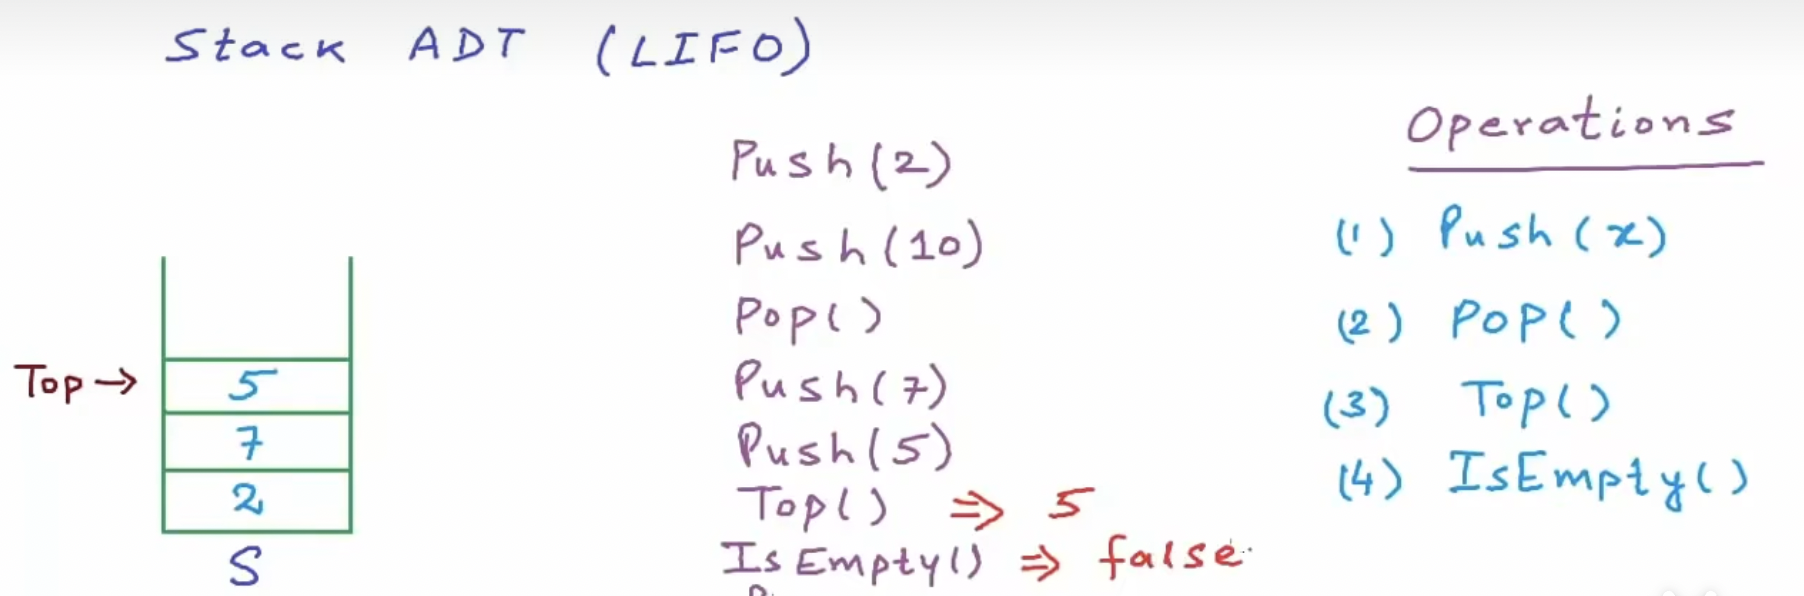 Stack ADT (LIFO)
Top →
5
7
2
S
Push(2)
Push(10)
Pop()
Push(7)
Push(5)
Top() ⇒ 5
IsEmpty() ⇒ false
Operations
(1) Push(x)
(2) Pop()
(3) Top()
(4) IsEmpty()